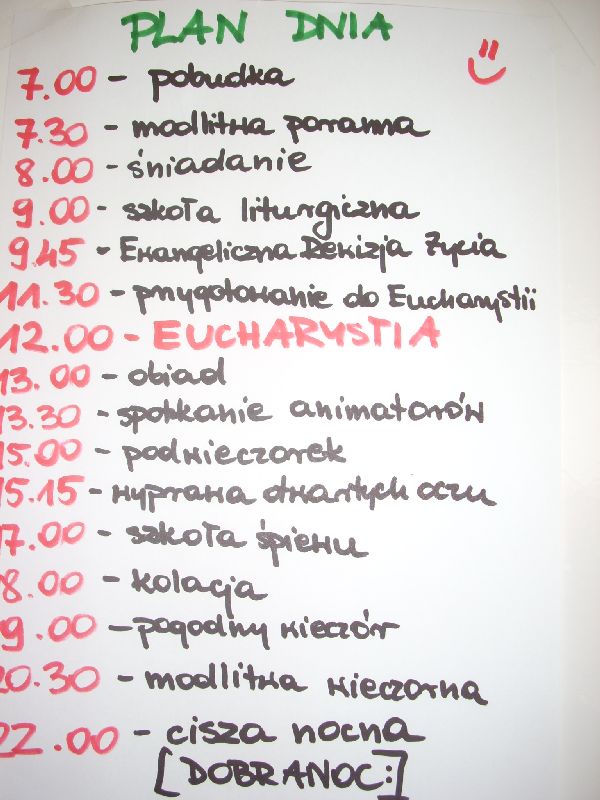 PLAN DNIA
7.00 - pobudka
7.30 - modlitwa poranna
8.00 - śniadanie
9.00 - szkoła liturgiczna
9.45 - Ewangeliczna Rewizja Życia
11.30 - przygotowanie do Eucharystii
12.00 - EUCHARYSTIA
13.00 - obiad
13.30 - spotkanie animatorów
15.00 - podwieczorek
15.15 - wyprawa otwartych oczu
17.00 - szkoła śpiewu
8.00 - kolacja
9.00 - pogodny wieczór
20.30 - modlitwa wieczorna
22.00 - cisza nocna
[DOBRANOC:]